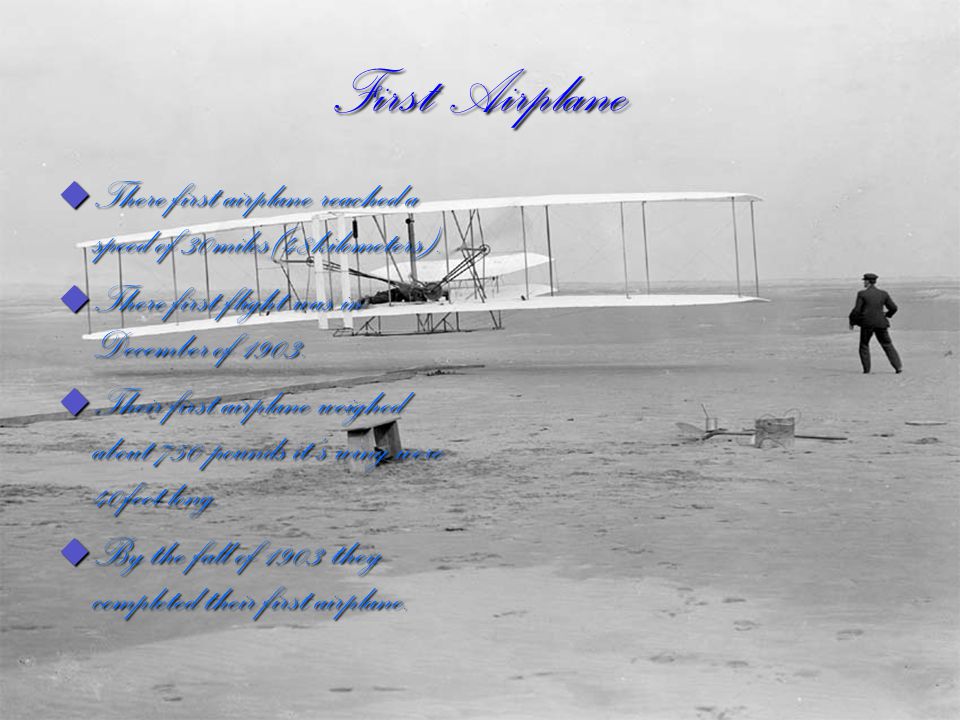 First Airplane
There first airplane reached a
speed of 30miles(48kilometers)
There first flight was in
December of 1903.
Their first airplane weighed
about 750 pounds it's wing were
40feet long
By the fall of 1903 they
completed their first airplane.